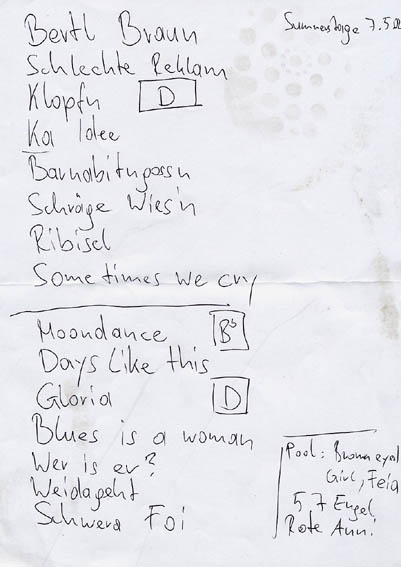 Summerstage 7.5.
Bertl Braun
Schlechte Reklam
Klopfn D
Ka Idee
Barnabitngassn
Schräge Wies'n
Ribisel
Sometimes we cry
Moondance Bb
Days Like this
Gloria D
Blues is a woman
Wer is er?
Weidageht
Schwera Foi
Pool: Brown eyed
Girl, Feia
57 Engel
Rote Anni